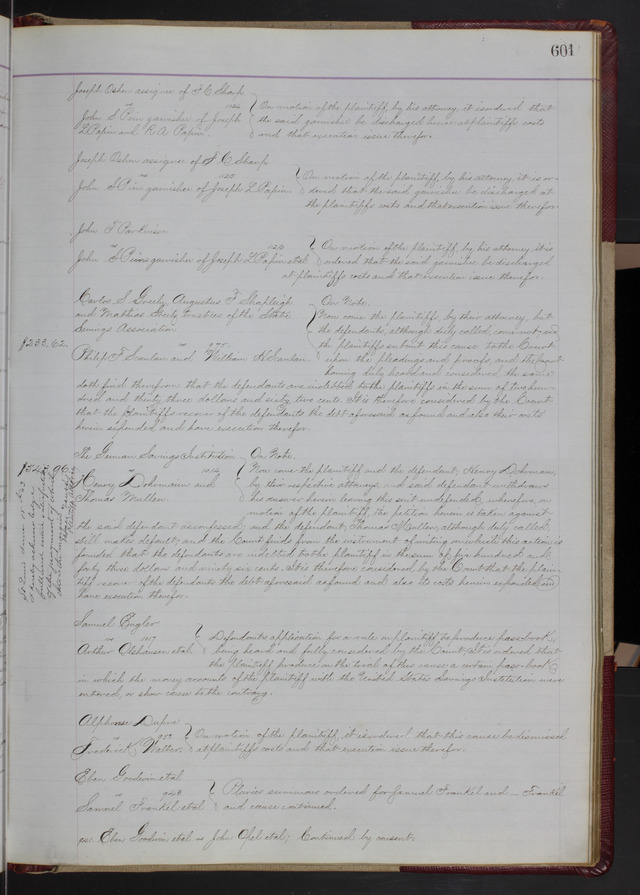 601
Joseph Osher assignee of F C Sharp
vs
John S Prim garnishee of Joseph
L Papin and R A Papin
On motion of the plaintiff, by his attorney, it is ordered that
the said garnishee be discharged herein at plaintiffs costs
and that execution issue therefor.
Joseph Osher assignee of F C Sharp
vs
John S Prim garnishee of Joseph L Papin
On motion of the plaintiff, by his attorney, it is or-
dered that the said garnishee be discharged at
the plaintiffs costs and that execution issue therefor
John T
vs
John S Prim garnishee of Joseph L Papin et al
On motion of the plaintiff, by his attorney, it is
ordered that the said garnishee be discharged
at plaintiffs costs and that execution issue therefor.
Carlos S Greely, Augustus F Shapleigh
and Mathias Steitz trustees of the State
Savings Association
vs
Philip F Scanlan and William H Scanlan
$233.62.
On Note.
Now come the plaintiffs, by their attorney, but
the defendants, although duly called, come not and
the plaintiffs submit this cause to the Court
upon the pleadings and proofs, and the Court
having duly heard and considered the same
doth find therefrom that the defendants are indebted to the plaintiffs in the sum of two hun-
dred and thirty three dollars and sixty two cents. It is therefore considered by the Court
that the plaintiffs recover of the defendants the debt aforesaid as found and also their costs
herein expended and have execution therefor.
The German Savings Institution
vs
Henry Dohrmann and
Thomas Mullen
$543.96
On Note.
Now come the plaintiff and the defendant, Henry Dohrmann,
by their respective attorneys, and said defendant withdraws
his answer herein leaving this suit undefended, wherefore, on
motion of the plaintiff, the petition herein is taken against
the said defendant as confessed, and the defendant, Thomas Mullen, although duly called,
still makes default; and the Court finds from the instrument of writing on which this action is
founded that the defendants are indebted to the plaintiff in the sum of five hundred and
forty three dollars and ninety six cents. It is therefore considered by the Court that the plain-
tiff recover of the defendants the debt aforesaid as found and also its costs herein expended and
have execution therefor.
Samuel Engler
vs 1017
Arthur Olshausen et al
Defendants application for a rule on plaintiff to produce pass-book
being heard and fully considered by the Court, It is ordered that
the Plaintiff produce on the trial of this cause a certain pass-book
in which the money accounts of the Plaintiff with the United States Savings Institution were
entered, or show cause to the contrary.
Alphonse Dupre
vs
Frederick Walter
On motion of the plaintiff, it is ordered that this cause be dismissed
at plaintiffs costs and that execution issue therefor.
Eben Goodwin et al
vs
Samuel Frankel et al
Pluries summons ordered for Samuel Frankel and — Frankel
and cause continued.
Eben Goodwin et al vs John Opel; Continued by consent.